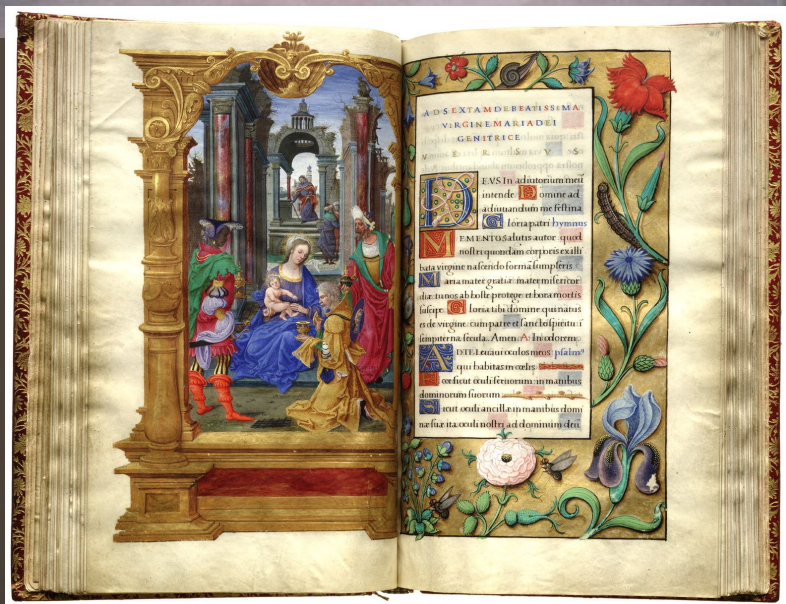 AD SEXTAM DE BEATISSIMA
VIRGINE MARIA DEI
GENITRICE
V E R S V S
DEVS In adiutorium meū
intende. Domine ad
adiuuandum me festina
Gloria patri hymnus
MEMENTO salutis autor quod
nostri quondam corporis ex illi
bata virgine nascendo formā sumpseris.
Maria mater gratiæ mater misericor
diæ tu nos ab hoste protege et hora mortis
suscipe. Gloria tibi domine qui natus
es de virgine cum patre et sancto spiritu ī
sempiterna sęcula. Amen. An In odorem.
AD TE leuaui oculos meos psalmꝰ
qui habitas in cœlis.
Ecce sicut oculi seruorum: in manibus
dominorum suorum
Sicut oculi ancillæ in manibus domi
næ suæ ita oculi nostri ad dominum deū